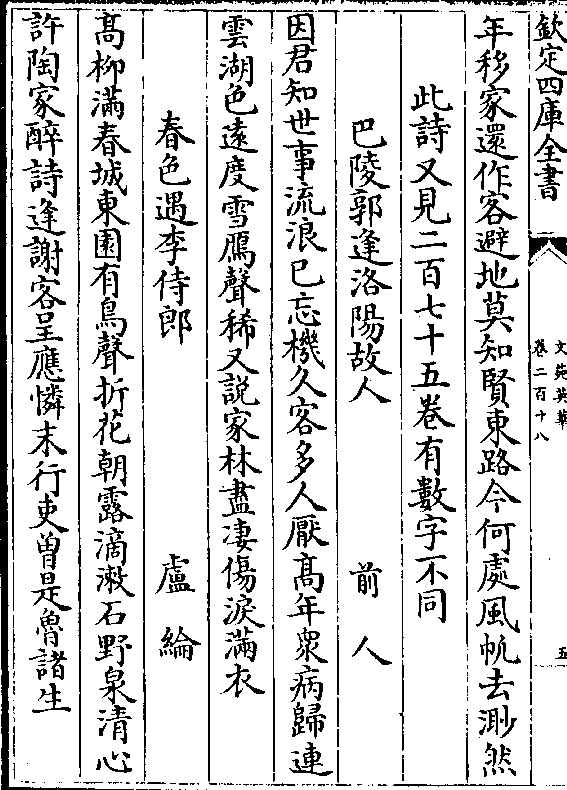 欽定四庫全書
文苑英華
卷二百十八
五
年移家還作客避地莫知賢東路今何處風帆去渺然
此詩又見二百七十五卷有數字不同
巴陵郭逢洛陽故人　前人
因君知世事流浪已忘機久客多人厭髙年衆病歸連
雲湖色遠度雪鴈聲稀又說家林盡凄傷淚滿衣
春色遇李侍郎　盧綸
髙柳滿春城東園有鳥聲折花朝露滴漱石野泉清心
許陶家醉詩逢謝客呈應憐末行吏曽是魯諸生